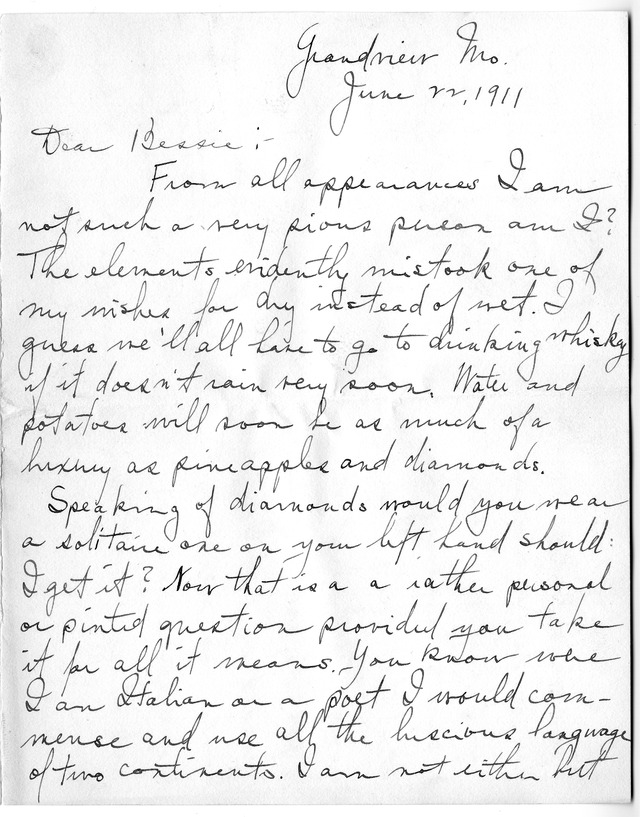 Grandview Mo.
June 22, 1911
Dear Bessie :-
From all appearances I am
not such a very pious person am I?
The elements evidently mistook one of
my wishes for dry instead of wet. I
guess we'll all have to go to drinking whisky
if it doesn't rain very soon. Water and
potatoes will soon be as much of a
luxury as pineapples and diamonds.
Speaking of diamonds would you wear
a solitaire one on your left hand should
I get it? Now that is a a rather personal
or pinted question provided you take
it for all it means. You know were
I an Italian or a poet I would com-
mense and use all the luscious language
of two continents. I am not either but